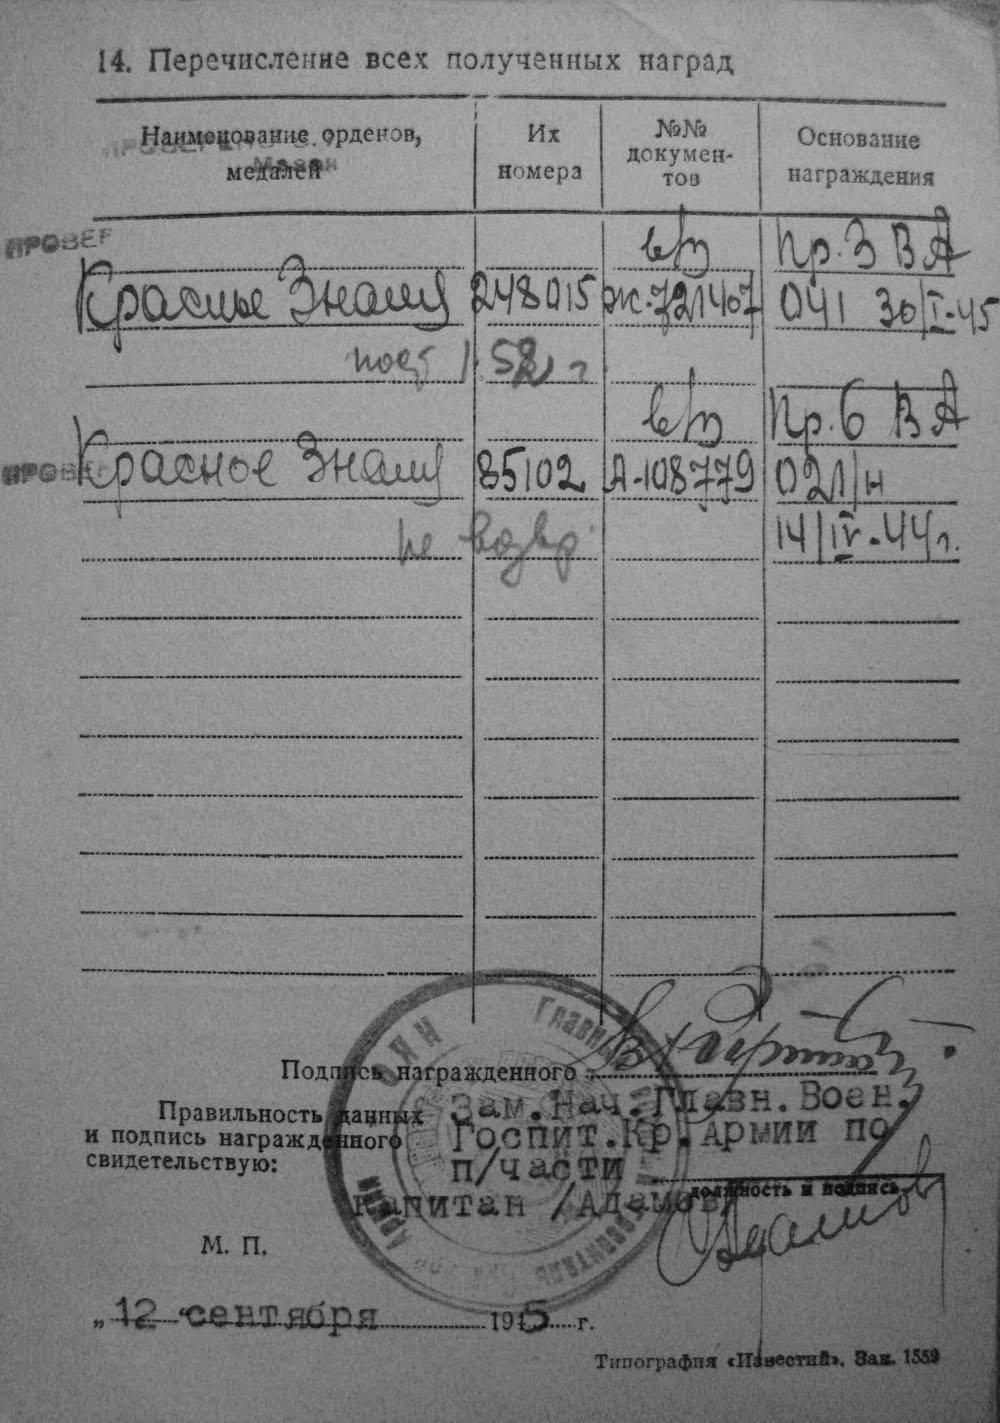 14. Перечисление всех полученных наград
Наименование орденов, медалей
Их номера
№№ документов
Основание награждения
ПРОВЕР
в/в Пр. 3 ВА
Красное Знамя 248015 Ж-721407 041 30/I-45
1.52 г.
в/в Пр. 6 ВА
ПРОВЕ
Красное Знамя 85102 А-108779 021/н
не возвр. 14/IV-44 г.
Подпись награжденного
Правильность данных
и подпись награжденного
свидетельствую:
Зам.Нач.Главн.Воен.
Госпит.Кр.Армии по
п/части
должность и подпись
Капитан /Адамов/
М. П.
„12“ сентября 1945 г.
Типография «Известий». Зак. 1559